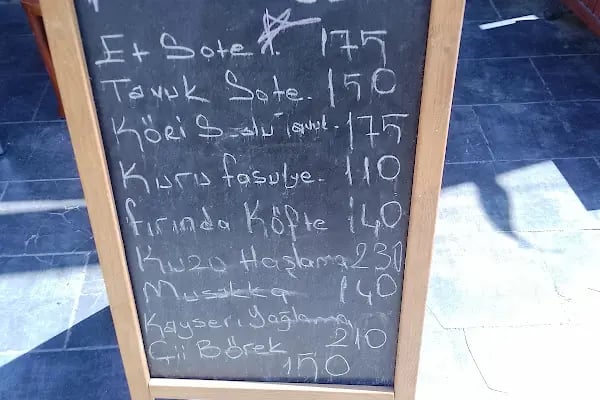 Et Sote 175
Tavuk Sote 150
Köri Soslu Tavuk 175
Kuru fasulye 110
fırında Köfte 140
Kuzu Haşlama 230
Musakka 140
Kayseri Yağlama
210
Çii Börek
150